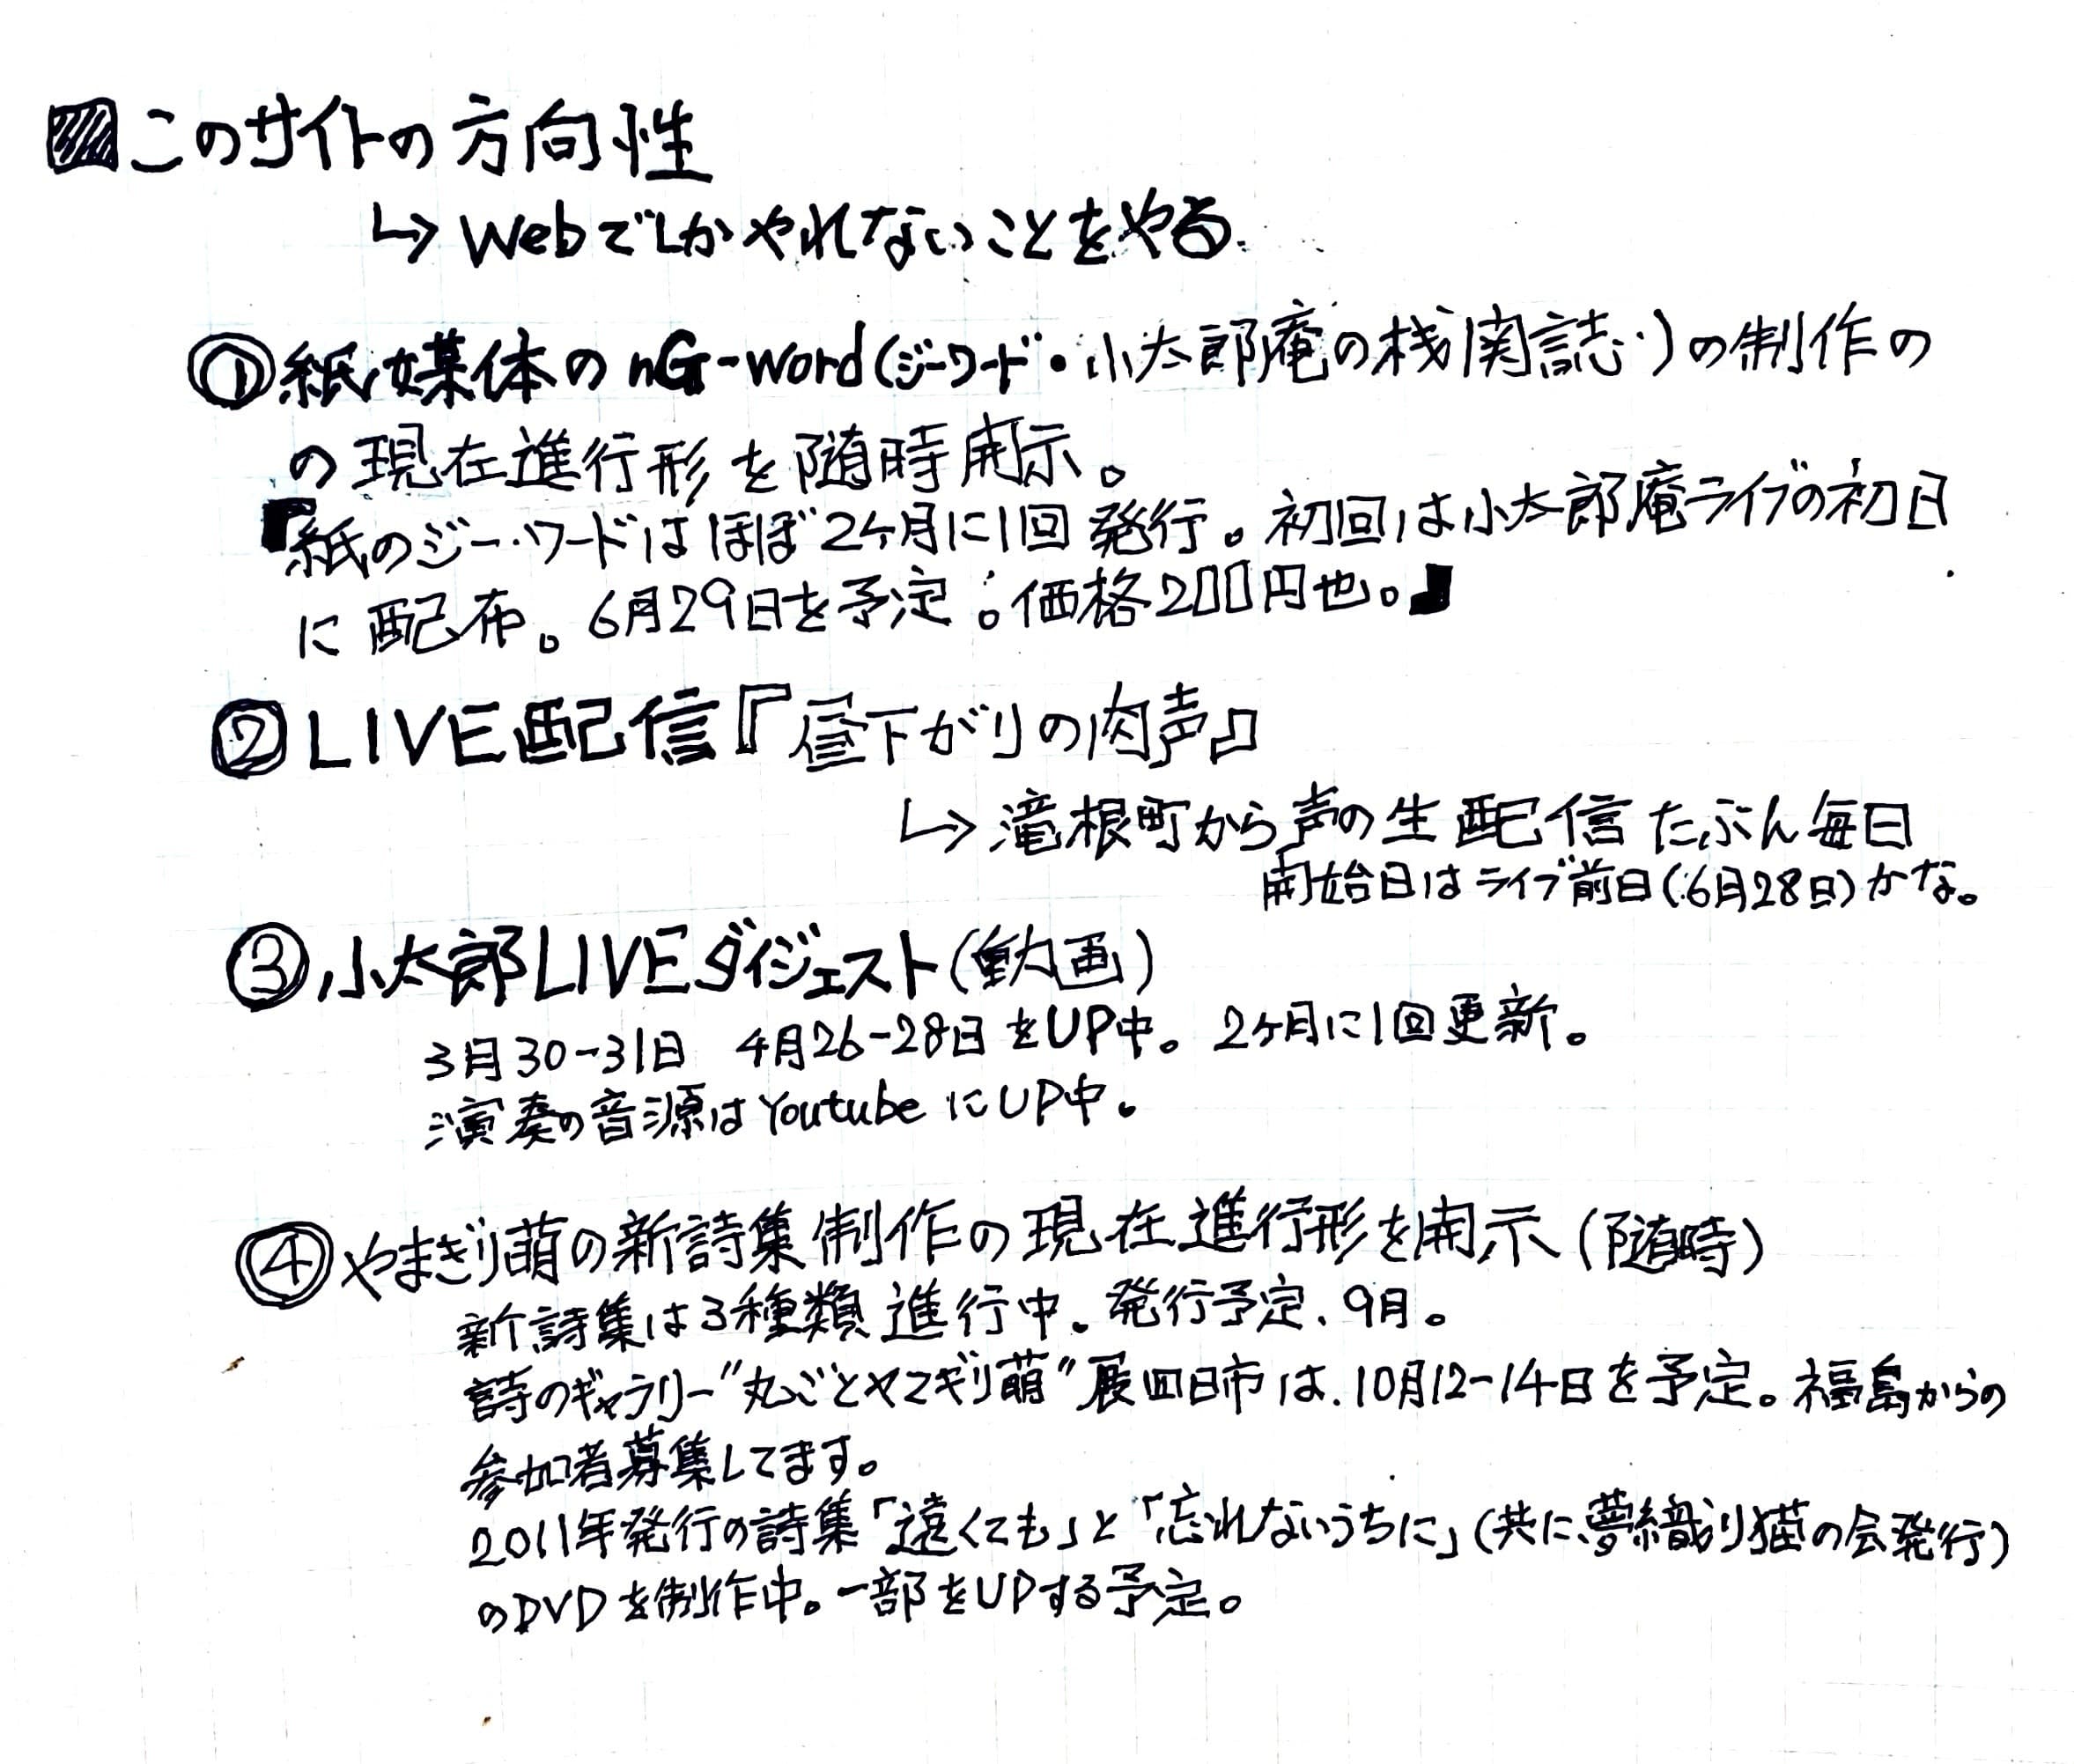 ■このサイトの方向性
↳Webでしかやれないことをやる.
①紙媒体のnG-word(ジーワード・小太郎庵の機関誌)の制作の
の現在進行形を随時開示。
『紙のジー・ワードはほぼ2ヶ月に1回発行。初回は小太郎庵ライブの初日
に配布。6月29日を予定。価格200円也。』
②LIVE配信『昼下がりの肉声』
↳滝根町から声の生配信たぶん毎日
開始日はライブ前日(6月28日)かな。
③小太郎LIVEダイジェスト(動画)
3月30-31日 4月26-28日をUP中。2ヶ月に1回更新。
演奏の音源はYoutubeにUP中。
④やまぎり萌の新詩集制作の現在進行形を開示(随時)
新詩集は3種類進行中。発行予定、9月。
詩のギャラリー"丸ごとヤマギリ萌"展四日市は、10月12-14日を予定。福島からの
参加者募集してます。
2011年発行の詩集「遠くても」と「忘れないうちに」(共に夢織り猫の会発行)
のDVDを制作中。一部をUPする予定。